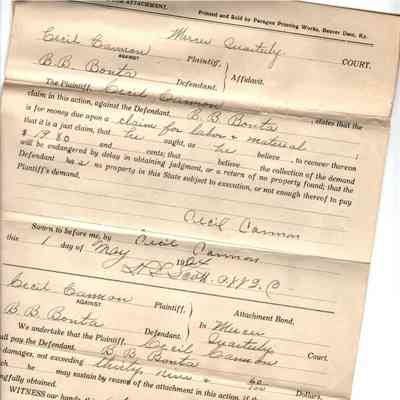 FOR ATTACHMENT.
Printed and Sold by Paragon Printing Works, Beaver Dam, Ky.
Mercer Quarterly COURT.
Cecil Cannon Plaintiff,
AGAINST
Affidavit.
B. B. Bonta Defendant.
The Plaintiff, Cecil Cannon states that the
claim in this action, against the Defendant, B. B. Bonta
is for money due upon a claim for labor & material ;
that it is a just claim, that he ought, as he believe, to recover thereon
$ 19 80 and cents; that believe the collection of the demand
will be endangered by delay in obtaining judgment, or a return of no property found; that the
Defendant has no property in this State subject to execution, or not enough thereof to pay
Plaintiff's demand.
Cecil Cannon
Sworn to before me, by Cecil Cannon
this 1 day of May 19
Cecil Cannon Plaintiff,
AGAINST
Attachment Bond.
B. B. Bonta Defendant.
In Mercer
Quarterly Court.
We undertake that the Plaintiff, Cecil Cannon
all pay the Defendant, B. B. Bonta
damages, not exceeding thirty nine & 60/100 Dollars,
ich he may sustain by reason of the attachment in this action, if the
ngfully obtained.
WITNESS our hands